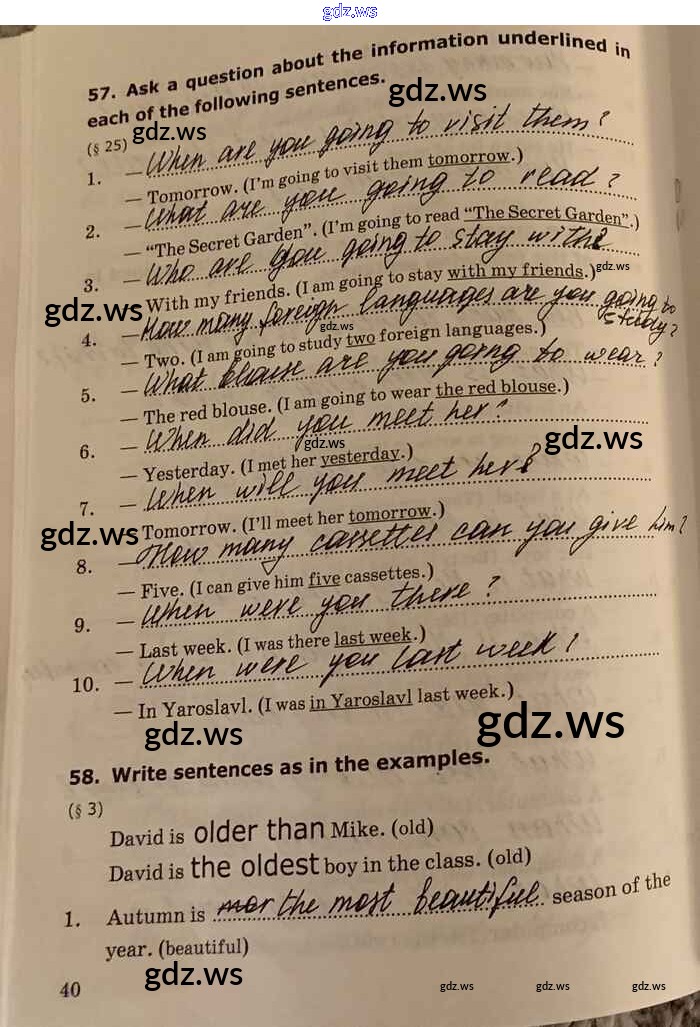 gdz.ws
57. Ask a question about the information underlined in
each of the following sentences.
gdz.ws
(§ 25)
gdz.ws
1. — When are you going to visit them?
— Tomorrow. (I'm going to visit them tomorrow.)
2. — What are you going to read?
— "The Secret Garden". (I'm going to read "The Secret Garden".)
3. — Who are you going to stay with?
gdz.ws
— With my friends. (I am going to stay with my friends.)
gdz.ws
4. — How many foreign languages are you going to
study?
gdz.ws
— Two. (I am going to study two foreign languages.)
5. — What blouse are you going to wear?
— The red blouse. (I am going to wear the red blouse.)
6. — When did you meet her?
gdz.ws
gdz.ws
— Yesterday. (I met her yesterday.)
7. — When will you meet her?
gdz.ws
— Tomorrow. (I'll meet her tomorrow.)
8. — How many cassettes can you give him?
— Five. (I can give him five cassettes.)
9. — When were you there?
— Last week. (I was there last week.)
10. — When were you last week?
— In Yaroslavl. (I was in Yaroslavl last week.)
gdz.ws
gdz.ws
58. Write sentences as in the examples.
(§ 3)
David is older than Mike. (old)
David is the oldest boy in the class. (old)
1. Autumn is the most beautiful season of the
year. (beautiful)
gdz.ws
40
gdz.ws gdz.ws gdz.ws